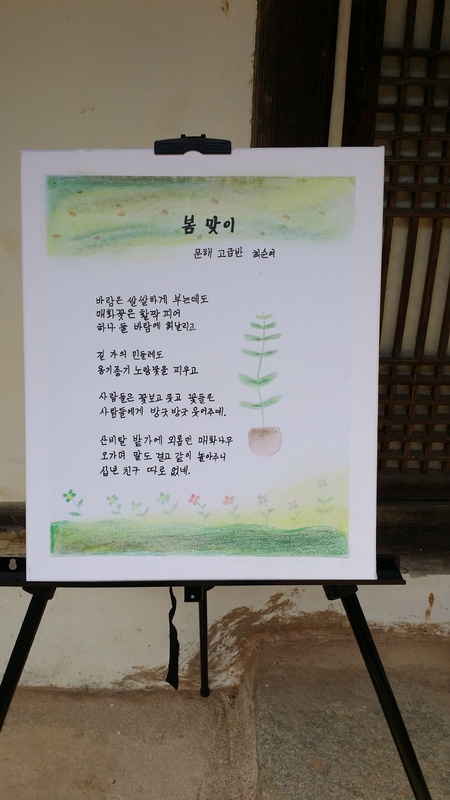 봄 맞이
문해 고급반 최순이
바람은 쌀쌀하게 부는데도
매화꽃은 활짝 피어
하나 둘 바람에 휘날리고
길 가의 민들레도
옹기종기 노랑꽃을 피우고
사람들은 꽃보고 웃고 꽃들은
사람들에게 방긋방긋 웃어주네.
산비탈 밭가에 외롭던 매화나무
오가며 말도 걸고 같이 놀아주니
십년 친구 따로 없네.